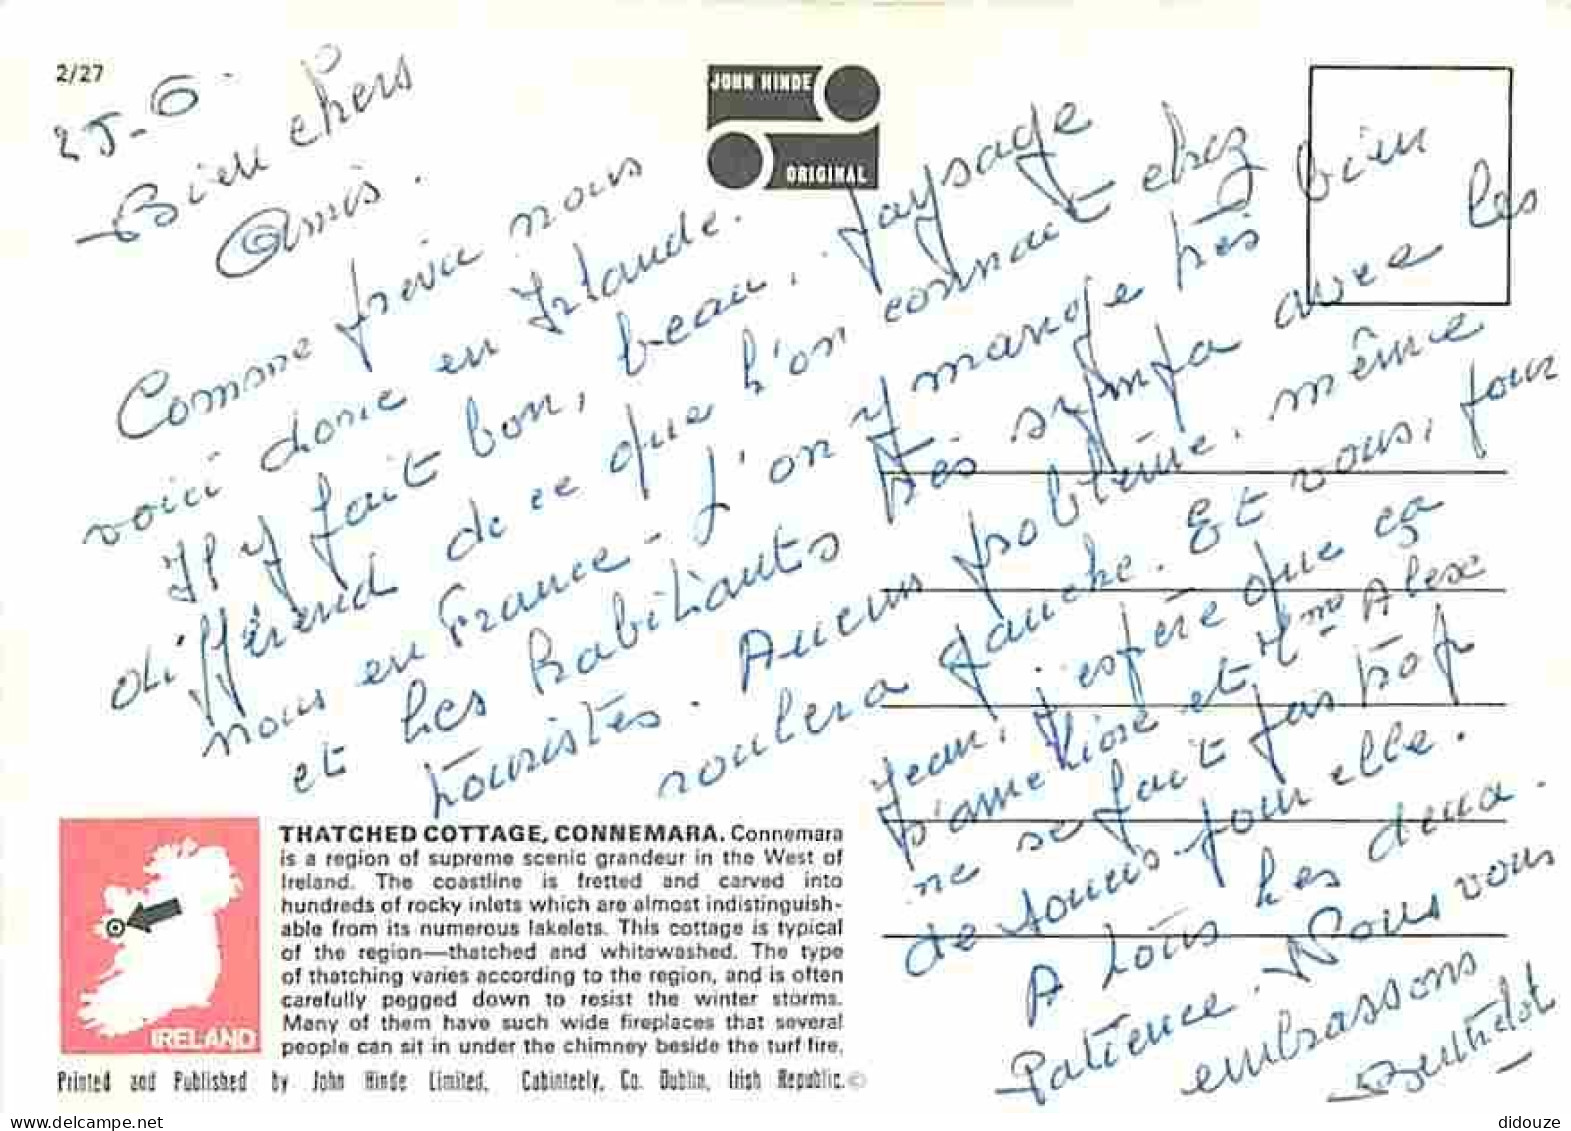 2/27
25-6.
Bien chers
Amis.
JOHN HINDE
ORIGINAL
Comme prévu nous
voici donc en Irlande.
Il y fait bon, beau, Paysage
différend de ce que l'on connait chez
nous en France - l'on y mange très bien
et les habitants très sympa avec les
touristes. Aucun problème. même
roulera gauche. Et vous, pour
Jean, j'espère que ça
s'améliore et Mme Alex
ne se fait pas trop
de soucis pour elle.
A tous les deux.
Patience. Nous vous
embrassons
Berthelot
THATCHED COTTAGE, CONNEMARA. Connemara
is a region of supreme scenic grandeur in the West of
Ireland. The coastline is fretted and carved into
hundreds of rocky inlets which are almost indistinguish-
able from its numerous lakelets. This cottage is typical
of the region—thatched and whitewashed. The type
of thatching varies according to the region, and is often
carefully pegged down to resist the winter storms.
Many of them have such wide fireplaces that several
people can sit in under the chimney beside the turf fire.
IRELAND
Printed and Published by John Hinde Limited, Cabinteely, Co. Dublin, Irish Republic.©
www.delcampe.net
didouze